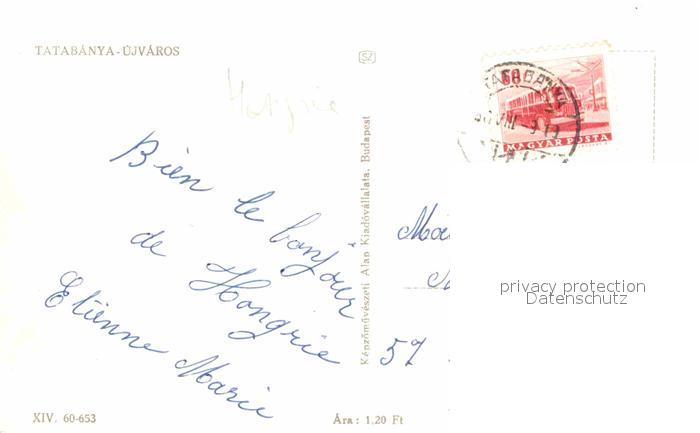 TATABÁNYA-ÚJVÁROS
Hongrie
Bien le bonjour
de Hongrie
Etienne Marie
Képzőművészeti Alap Kiadóvállalata, Budapest
XIV. 60-653
Ára: 1,20 Ft
TATABÁNYA
60
MAGYAR POSTA
57
privacy protection
Datenschutz